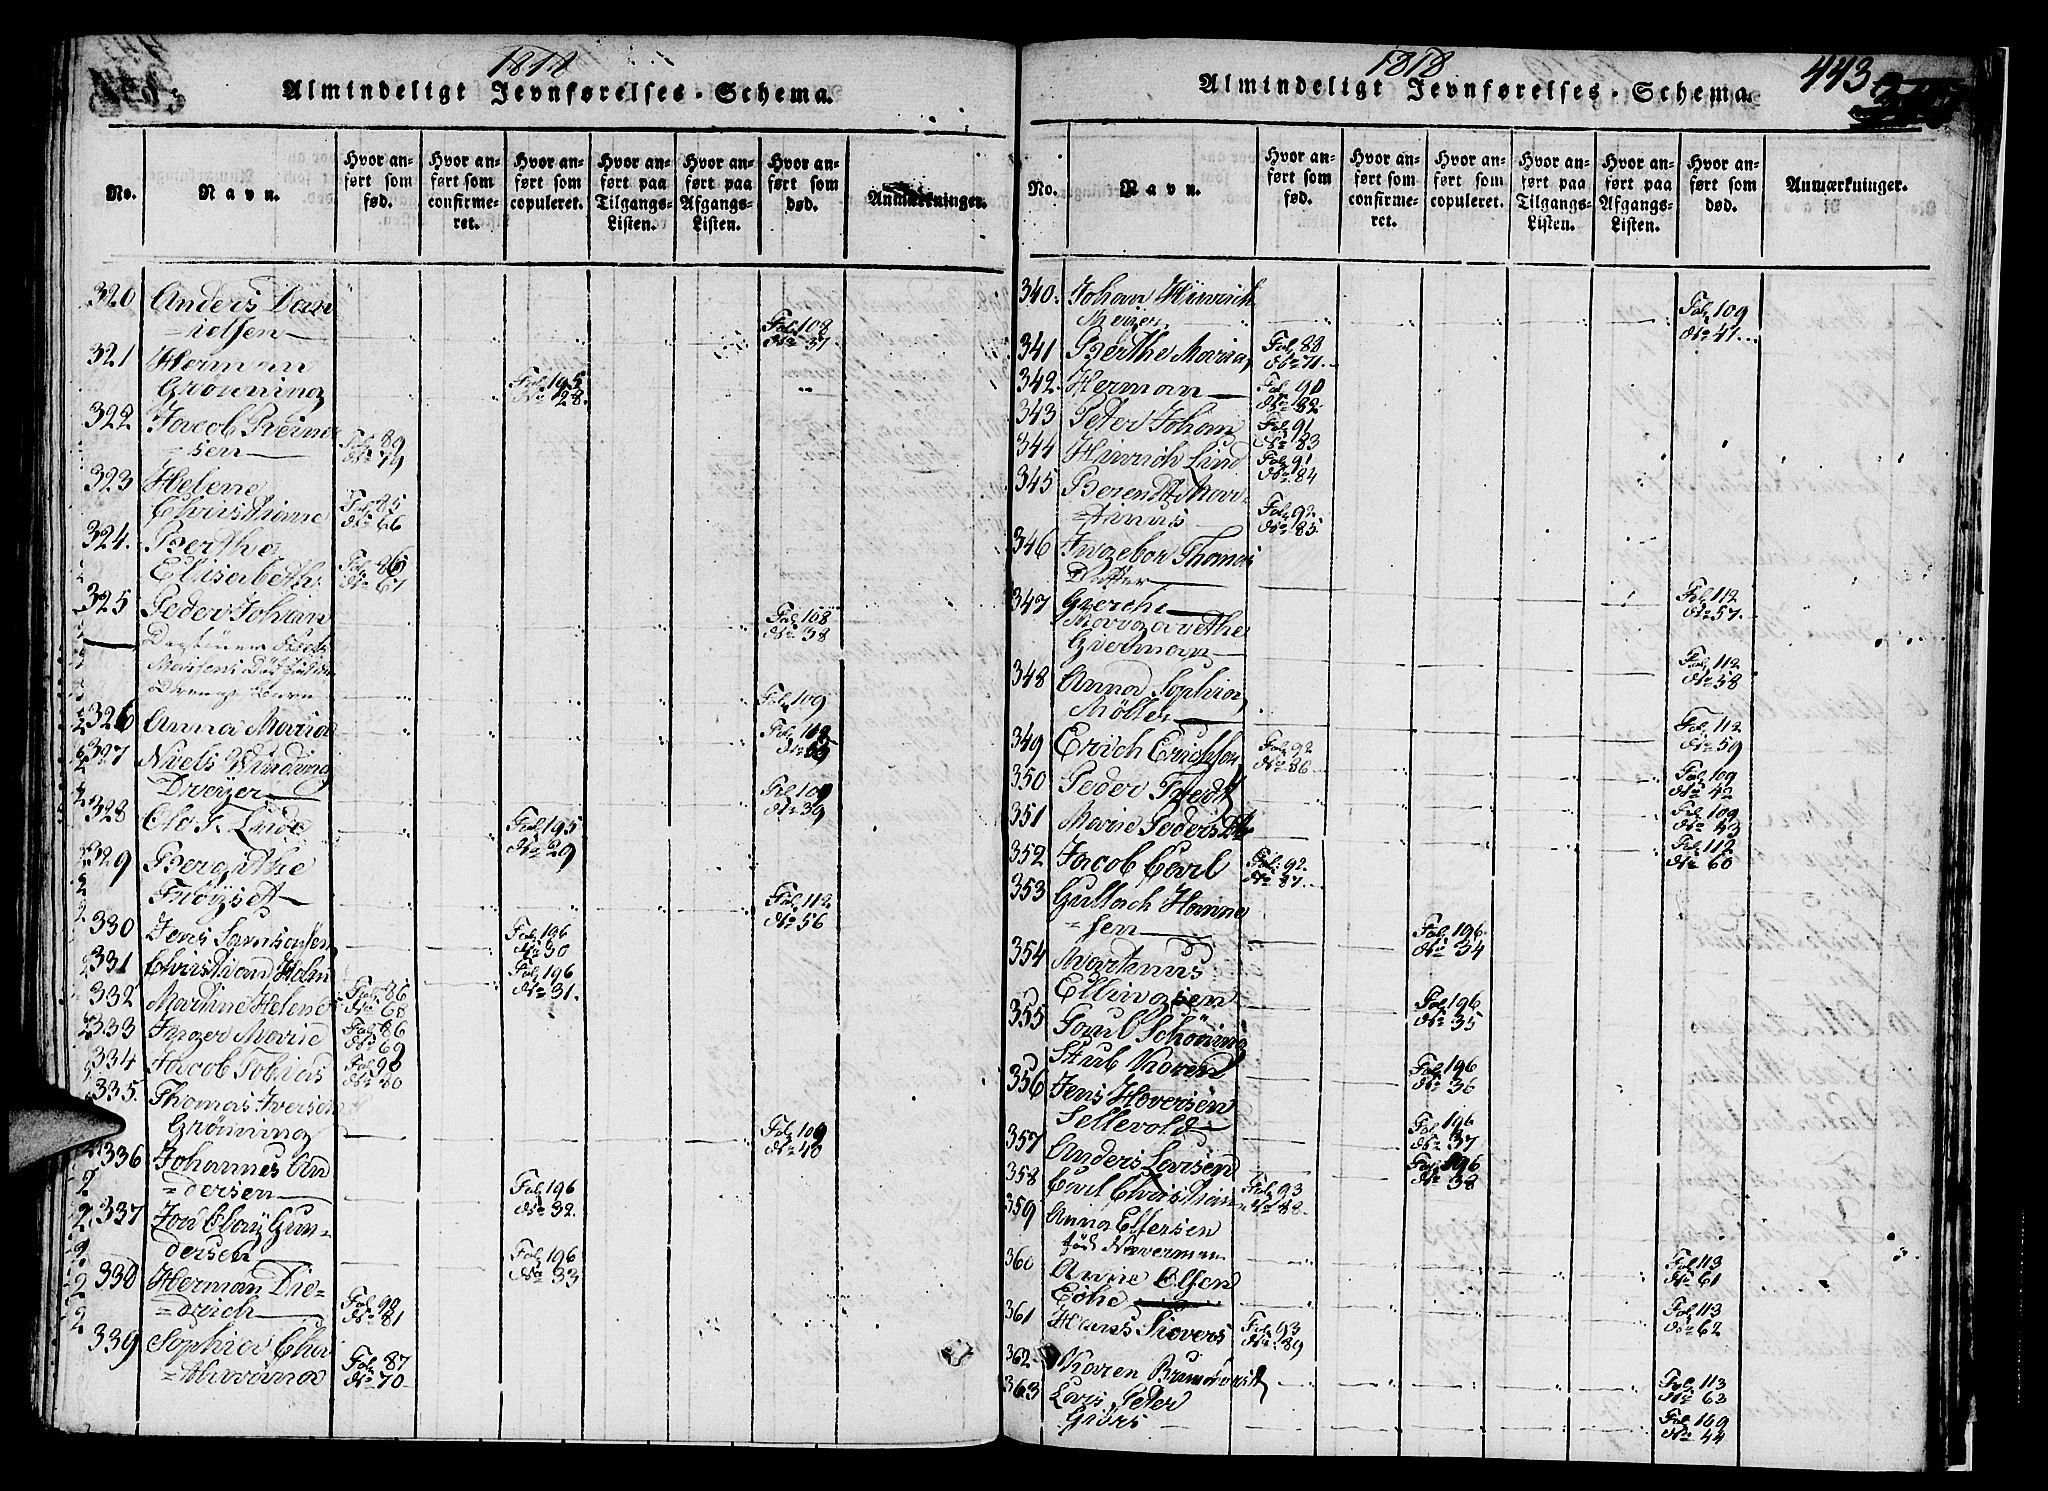 1818
Almindeligt Jevnførelses-Schema.
No.
Navn.
Hvor anført som fød.
Hvor anført som confirmeret.
Hvor anført som copuleret.
Hvor anført paa Tilgangs-Listen.
Hvor anført paa Afgangs-Listen.
Hvor anført som død.
Anmærkninger.
320 Anders Dani
=ielsen Fol. 108
No 37
321 Herman
Grønning Fol. 195
No 28.
322 Jacob Reime
=sen Fol. 89
No 79
323 Helene
Christiane Fol. 85
No 66
324. Berthe
Elisabeth Fol. 86
No 67
325 Peder Johan Fol. 108
No 38
Fol. 109
326 Anna Maria Fol. 112
327 Niels Winding
Dreyer Fol. 109
No 39
328 Ole T. Linde Fol. 195
No 29
329 Bergithe
Fløyset Fol. 112
No 56
330 Jens Samsonsen Fol. 196
No 30
331 Christian Holm Fol. 196
No 31.
332 Martine Helene Fol. 86
No 68
333 Inger Marie Fol. 86
No 69
334 Jacob Tobias Fol. 90
No 80
335. Thomas Iversen
Grønning Fol. 109
No 40
336 Johannes An
=dersen Fol. 196
No 32.
337 Gun-
dersen Fol. 196
No 33
338 Herman Die-
=drich Fol. 90
No 81
339 Sophia Cha
=tharina Fol. 87
No 70
1818
443
Almindeligt Jevnførelses-Schema.
No.
Navn.
Hvor anført som fød.
Hvor anført som confirmeret.
Hvor anført som copuleret.
Hvor anført paa Tilgangs-Listen.
Hvor anført paa Afgangs-Listen.
Hvor anført som død.
Anmærkninger.
340. Johan Hinrich
Meyer Fol. 109
No 41
341 Berthe Maria Fol. 88
No 71
342. Herman Fol. 90
No 82
343 Peter Johan Fol. 91
No 83
344 Hinrich Lind Fol. 91
No 84
345 Berendt Mar
=tinus Fol. 92.
No 85
346 Ingebor Thomas
Datter Fol. 112
No 57
347 Gjerche
Margarethe
Gierman Fol. 112
No 58
348 Anna Sophia
Møller Fol. 112
No 59
349 Erich Erichsen Fol. 92
No 86
350 Peder Fol. 109
No 42
351 Marie Pedersdtr Fol. 109
No 43
352 Jacob Carl Fol. 92.
No 87
Fol. 112
No 60
353 Gullach Hanne
=sen Fol. 196
No 34
354 Martinus
Ellingsen Fol. 196
No 35
355 Poul Schöning
Stub Fol. 196
No 36
356 Jens Hoversen
Sellevold Fol. 196
No 37
357 Anders Larsen Fol. 196
No 38
358 Carl Christian Fol. 93
No 88.
359 Anna Ellersen
født Naverman Fol. 113
No 61
360 Anne Olsen
Fol. 113
No 62
361 Hans Sievers Fol. 93
No 89
362 Karen Fol. 113
No 63
363 Lars Peter
Giörs Fol. 109
No 44